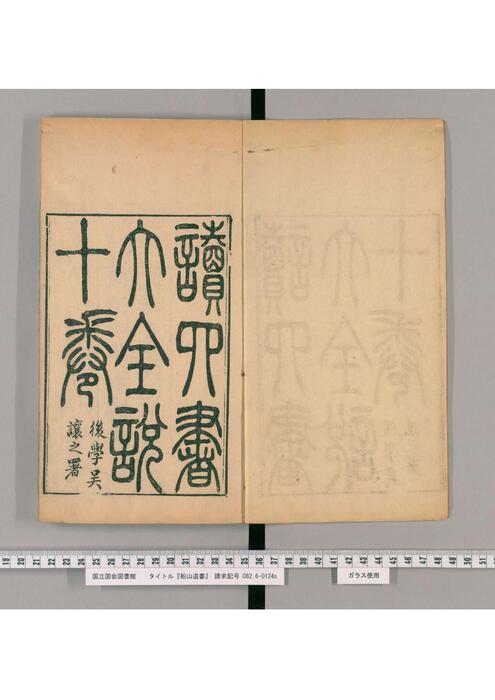 讀四書
大全說
十卷
後學吳
讓之署
19 20 21 22 23 24 25 26 27 28 29 30 31 32 33 34 35 36 37 38 39 40 41 42 43 44 45 46 47 48 49 50 51
国立国会図書館 タイトル『船山遺書』 請求記号 082.6-0124s
ガラス使用